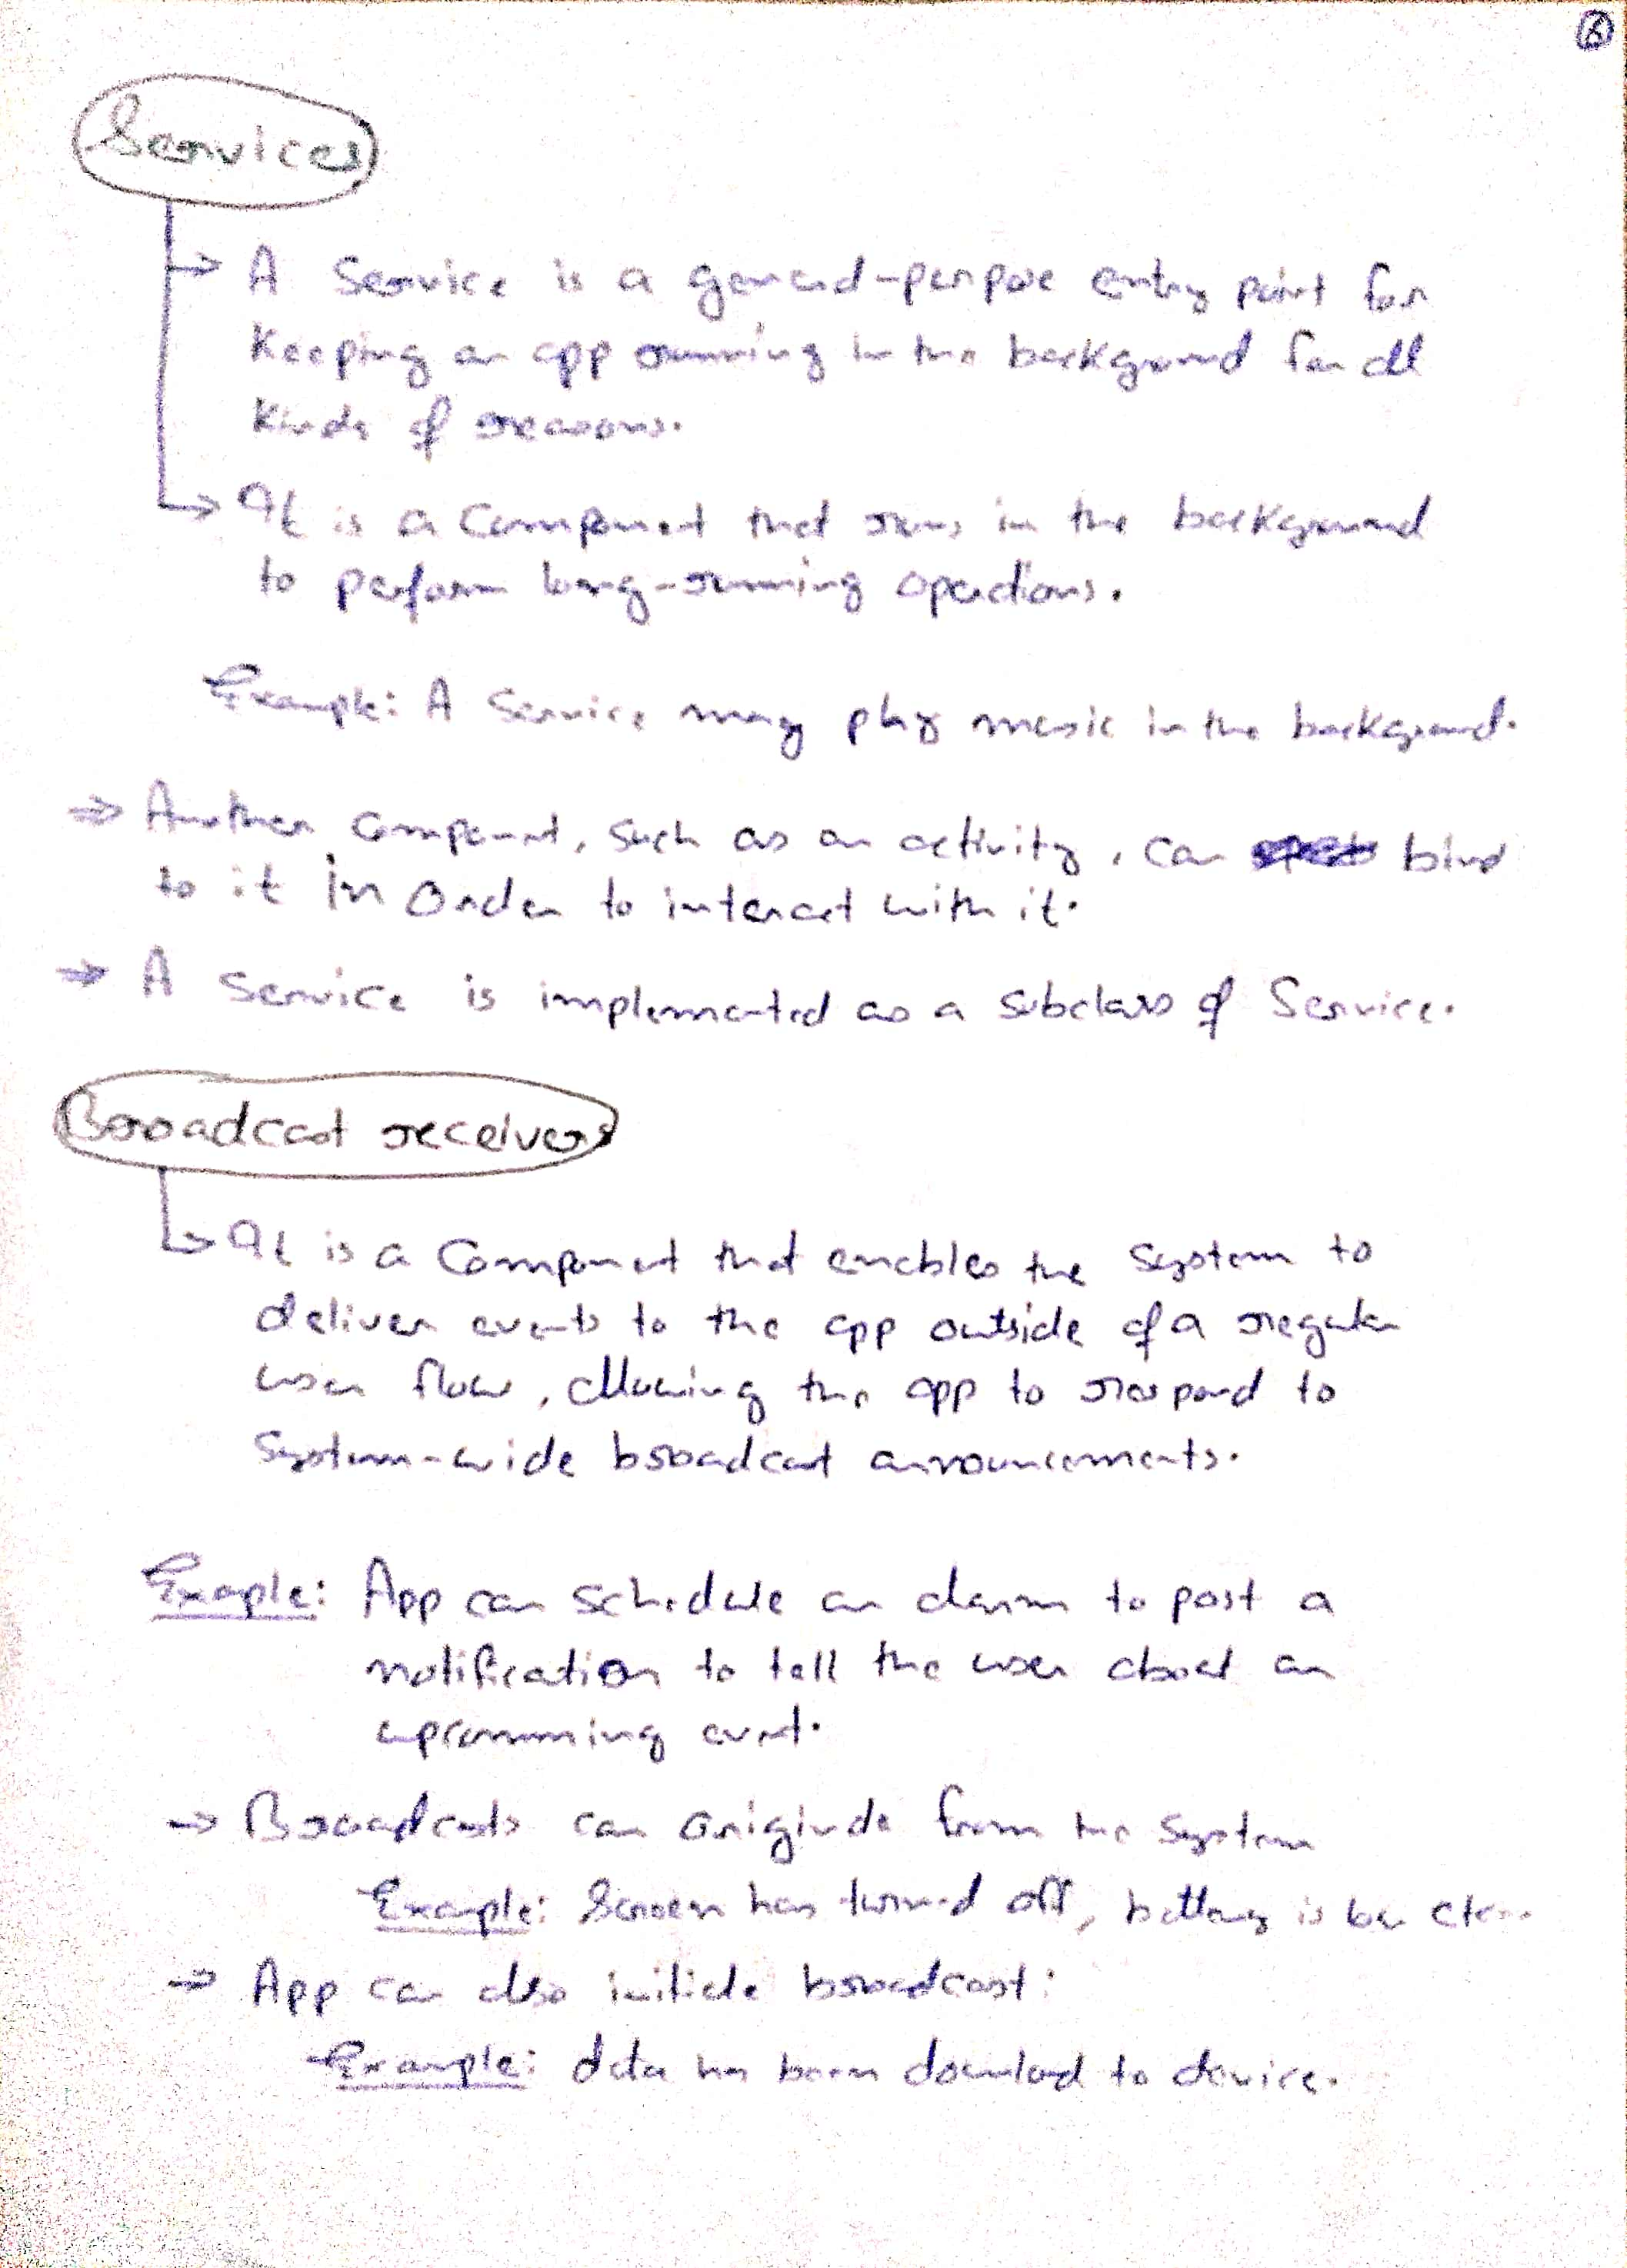 6
Services
→ A Service is a general-purpose entry point for
Keeping an app running in the background for all
Kinds of reasons.
→ It is a Component that runs in the background
to perform long-running operations.
Example: A Service may play music in the background.
⇒ Another component, such as an activity, can bind
to it in order to interact with it.
⇒ A Service is implemented as a subclass of Service.
Broadcast receivers
→ It is a Component that enables the system to
deliver events to the app outside of a regular
user flow, allowing the app to respond to
System-wide broadcast announcements.
Exaple: App can schedule an alarm to post a
notification to tell the user about an
upcomming event.
→ Broadcasts can originate from the System
Example: Screen has turned off, battery is low etc...
→ App can also initiate broadcast:
Example: data has been download to device.